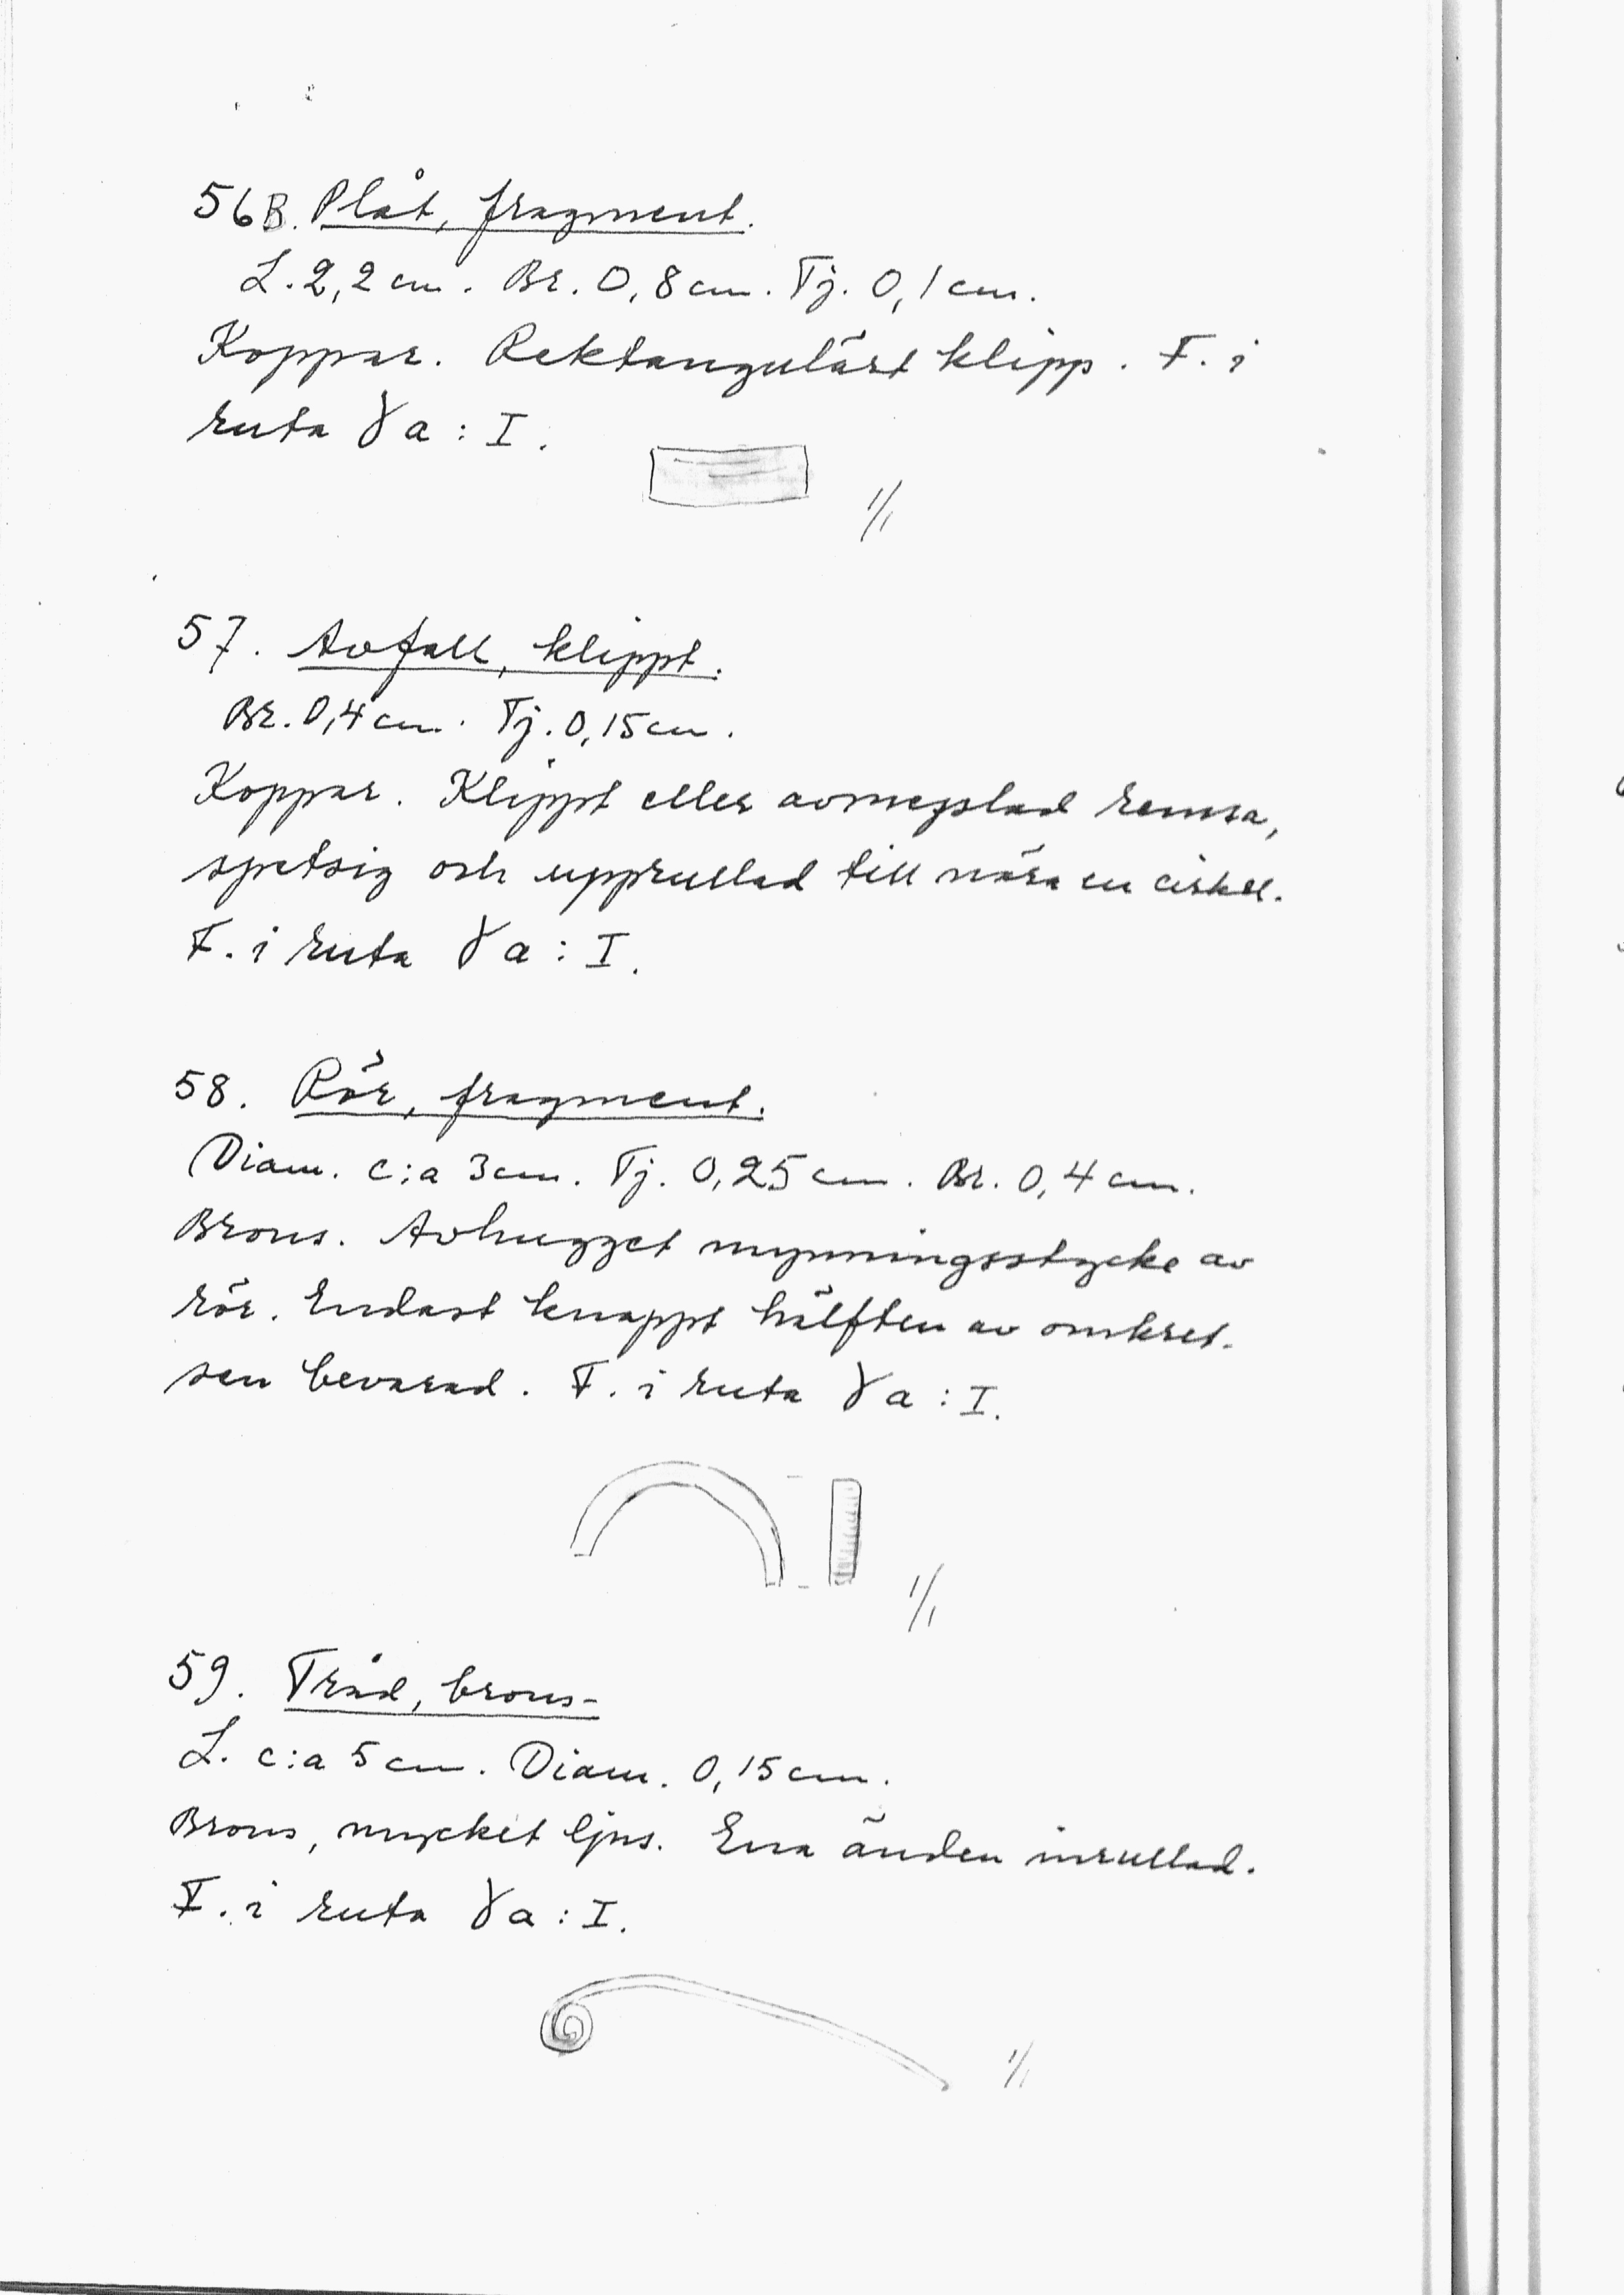 56B. Plåt, fragment.
L. 2,2 cm. Br. 0,8 cm. Tj. 0,1 cm.
Koppar. Rektangulärt klipp. F. i
ruta γ a : I.
1/1
57. Avfall, klippt.
Br. 0,4 cm. Tj. 0,15 cm.
Koppar. Klippt eller avmejslad remsa,
spetsig och upprullad till nära en cirkel.
F. i ruta γ a : I.
58. Rör, fragment.
Diam. c:a 3 cm. Tj. 0,25 cm. Br. 0,4 cm.
Brons. Avhugget mynningsstycke av
rör. Endast knappt hälften av omkret-
sen bevarad. F. i ruta γ a : I.
1/1
59. Tråd, brons-
L. c:a 5 cm. Diam. 0,15 cm.
Brons, mycket ljus. Ena änden inrullad.
F. i ruta γ a : I.
1/1